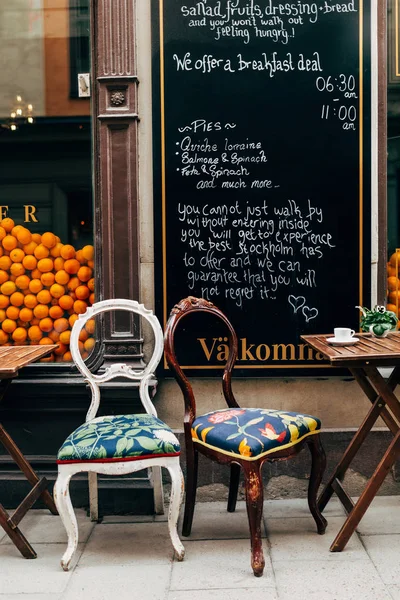 salad, fruits, dressing + bread
and you won't walk out
feeling hungry!
We offer a breakfast deal
06:30
am
11:00
am
~ Pies ~
• Quiche lorraine
• Salmon & Spinach
• Feta & Spinach
and much more...
You cannot just walk by
without entering inside
you will get to experience
the best Stockholm has
to offer and we can
guarantee that you will
not regret it.
ER
Välkomna